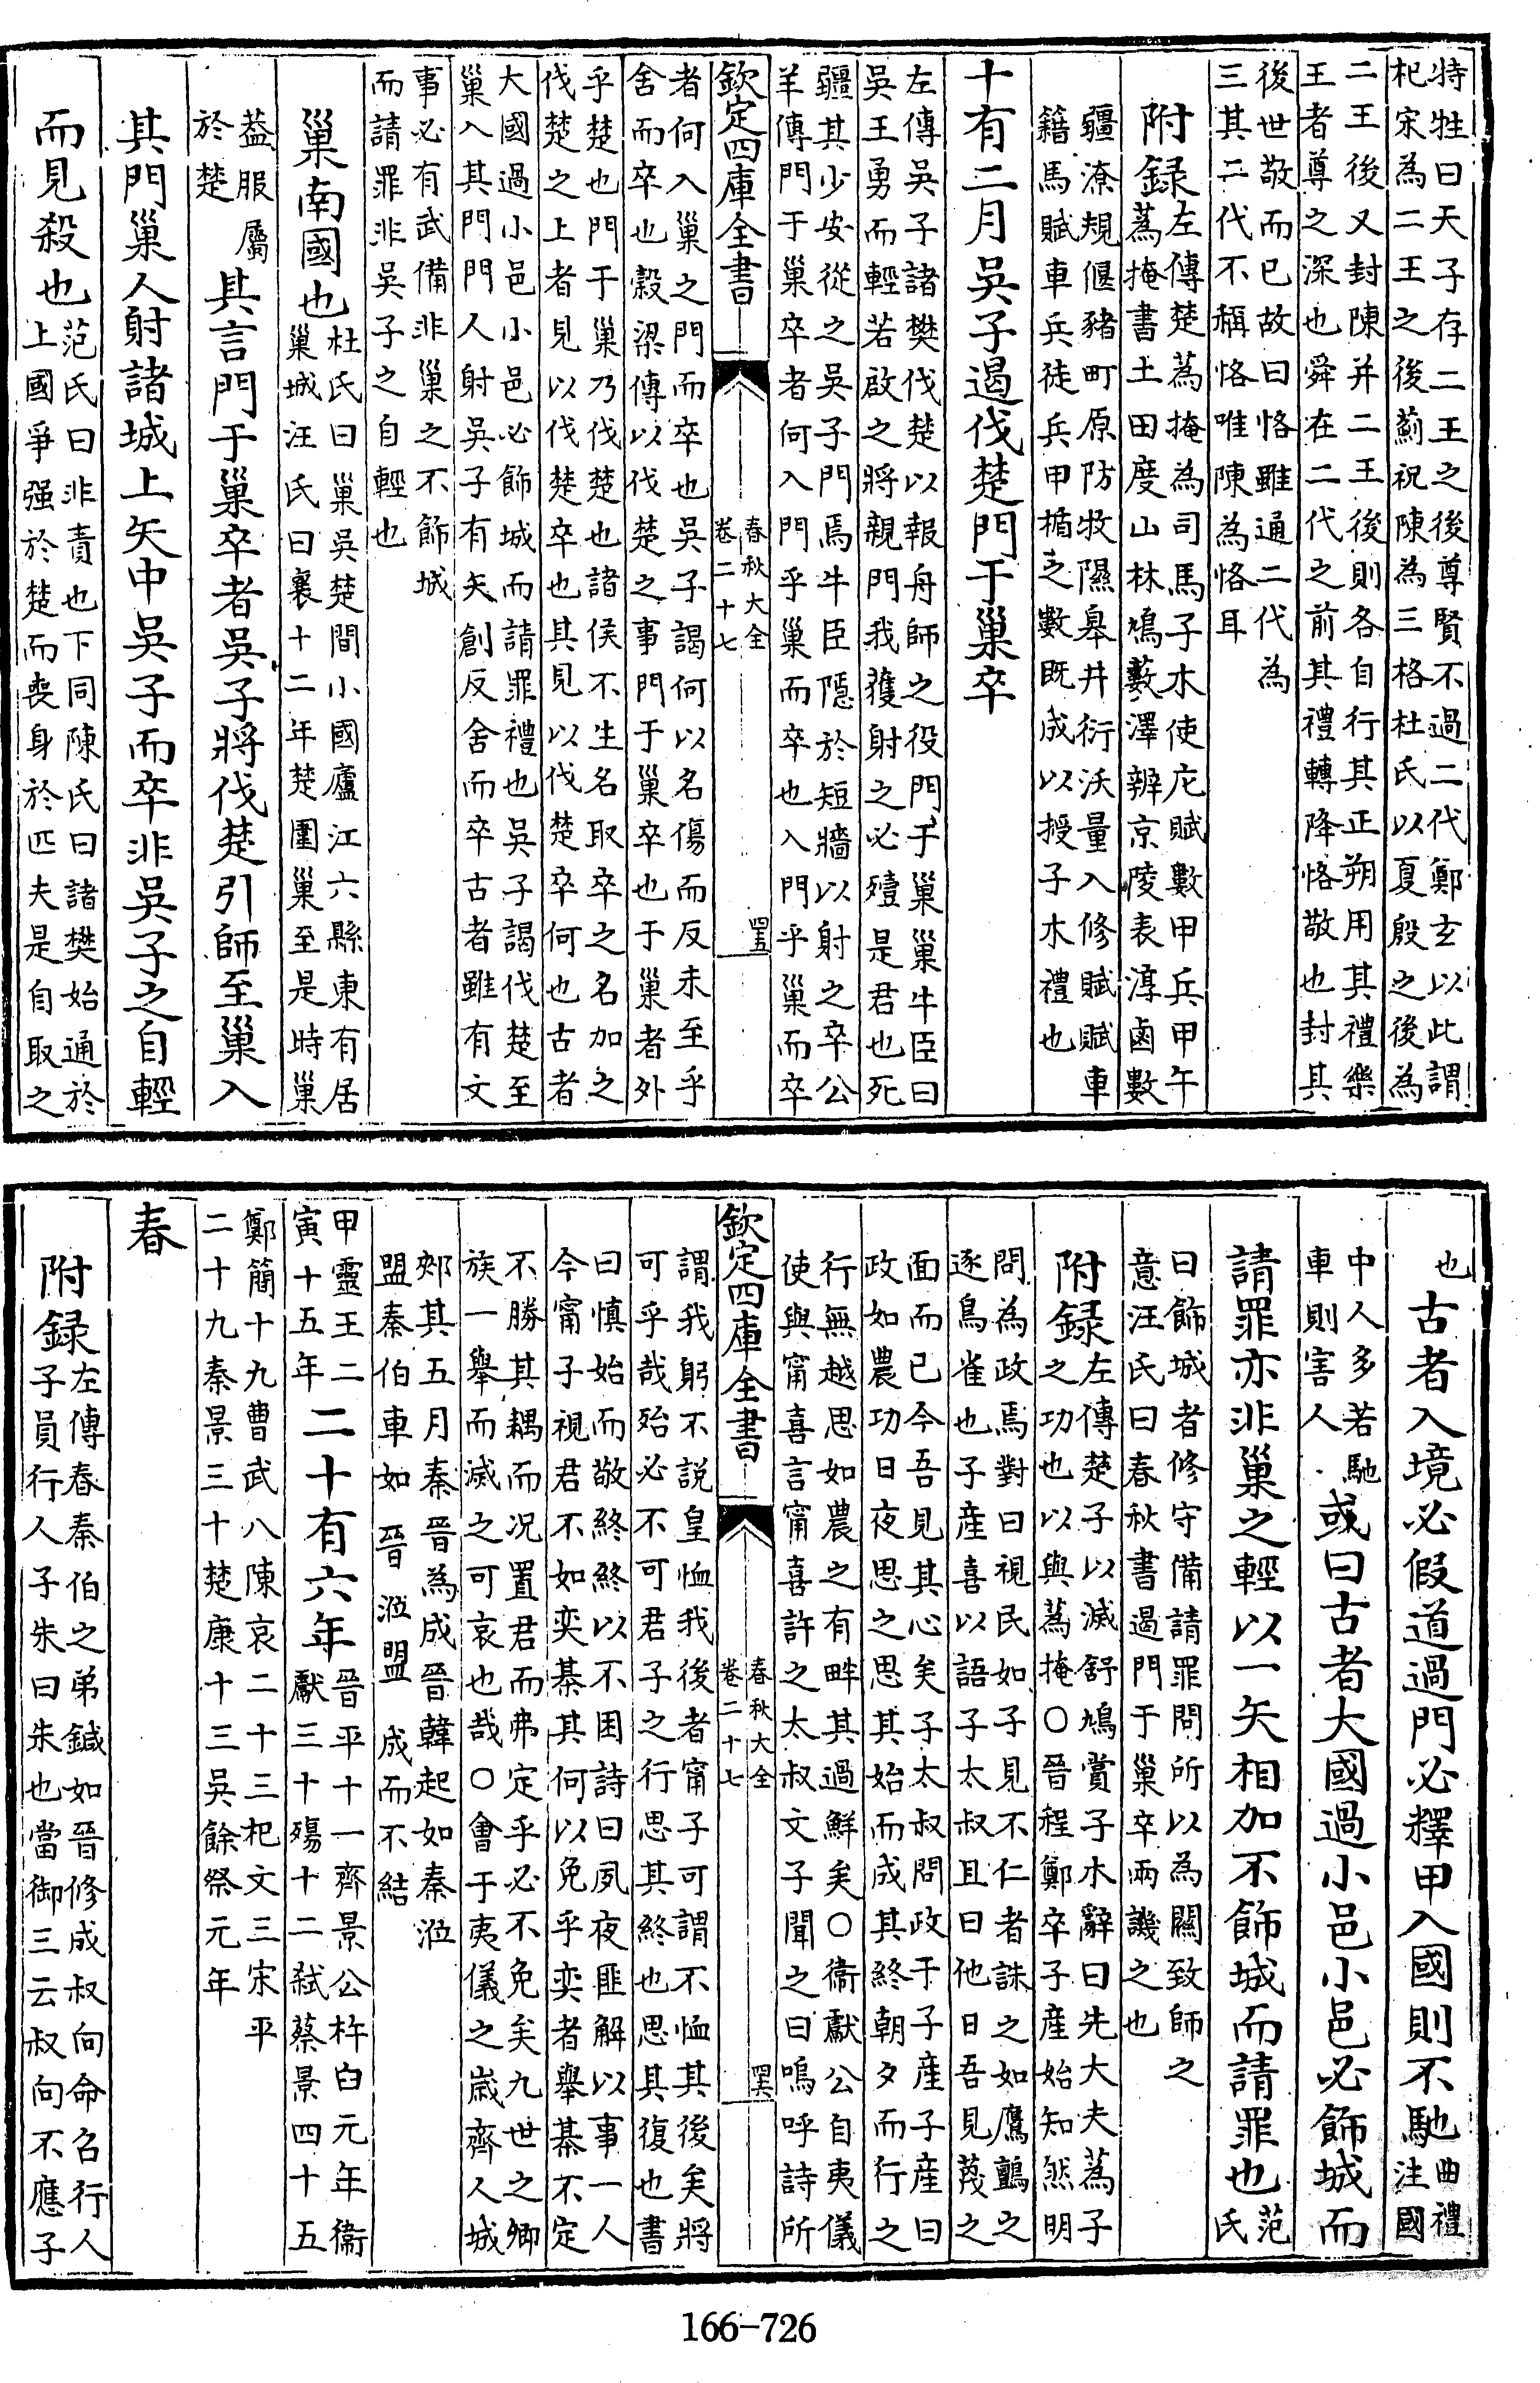 特牲曰天子存二王之後尊賢不過二代鄭玄以此謂
杞宋為二王之後薊祝陳為三格杜氏以夏殷之後為
二王後又封陳并二王後則各自行其正朔用其禮樂
王者尊之深也舜在二代之前其禮轉降恪敬也封其
後世敬而已故曰恪雖通二代為
三其二代不稱恪唯陳為恪耳
附録左傳楚蒍掩為司馬子木使庀賦數甲兵甲午
蒍掩書土田度山林鳩藪澤辨京陵表淳鹵數
疆潦規偃豬町原防牧隰皋井衍沃量入修賦賦車
籍馬賦車兵徒兵甲楯之數既成以授子木禮也
十有二月吳子遏伐楚門于巢卒
左傳吳子諸樊伐楚以報舟師之役門于巢巢牛臣曰
吳王勇而輕若啟之將親門我獲射之必殪是君也死
疆其少安從之吳子門焉牛臣隱於短牆以射之卒公
羊傳門于巢卒者何入門乎巢而卒也入門乎巢而卒
欽定四庫全書
春秋大全
卷二十七
罣
者何入巢之門而卒也吳子謁何以名傷而反未至乎
舍而卒也穀梁傳以伐楚之事門于巢卒也于巢者外
乎楚也門于巢乃伐楚也諸侯不生名取卒之名加之
伐楚之上者見以伐楚卒也其見以伐楚卒何也古者
大國過小邑小邑必飾城而請罪禮也吳子謁伐楚至
巢入其門門人射吳子有矢創反舍而卒古者雖有文
事必有武備非巢之不飾城
而請罪非吳子之自輕也
巢南國也杜氏曰巢吳楚間小國廬江六縣東有居
巢城汪氏曰襄十二年楚圍巢至是時巢
蓋服屬
於楚
其言門于巢卒者吳子將伐楚引師至巢入
其門巢人射諸城上矢中吳子而卒非吳子之自輕
而見殺也范氏曰非責也下同陳氏曰諸樊始通於
上國爭强於楚而喪身於匹夫是自取之
也
古者入境必假道過門必釋甲入國則不馳曲禮
注國
中人多若馳
車則害人
或曰古者大國過小邑小邑必飾城而
請罪亦非巢之輕以一矢相加不飾城而請罪也范
氏
曰飾城者修守備請罪問所以為闗致師之
意汪氏曰春秋書遏門于巢卒兩譏之也
附録左傳楚子以滅舒鳩賞子木辭曰先大夫蒍子
之功也以與蒍掩○晉程鄭卒子産始知然明
問為政焉對曰視民如子見不仁者誅之如鷹鸇之
逐鳥雀也子産喜以語子太叔且曰他日吾見蔑之
面而已今吾見其心矣子太叔問政于子産子産曰
政如農功日夜思之思其始而成其終朝夕而行之
行無越思如農之有畔其過鮮矣○衞獻公自夷儀
使與甯喜言甯喜許之太叔文子聞之曰嗚呼詩所
欽定四庫全書
春秋大全
卷二十七
罤
謂我躬不説皇恤我後者甯子可謂不恤其後矣將
可乎哉殆必不可君子之行思其終也思其復也書
曰慎始而敬終終以不困詩曰夙夜匪解以事一人
今甯子視君不如奕棊其何以免乎奕者舉棊不定
不勝其耦而况置君而弗定乎必不免矣九世之卿
族一舉而滅之可哀也哉○會于夷儀之歲齊人城
郟其五月秦晉為成晉韓起如秦涖
盟秦伯車如晉涖盟成而不結
甲靈王二
寅十五年
二十有六年晉平十一齊景公杵臼元年衞
獻三十殤十二弑蔡景四十五
鄭簡十九曹武八陳哀二十三杞文三宋平
二十九秦景三十楚康十三吳餘祭元年
春
附録左傳春秦伯之弟鍼如晉修成叔向命召行人
子員行人子朱曰朱也當御三云叔向不應子
166-726